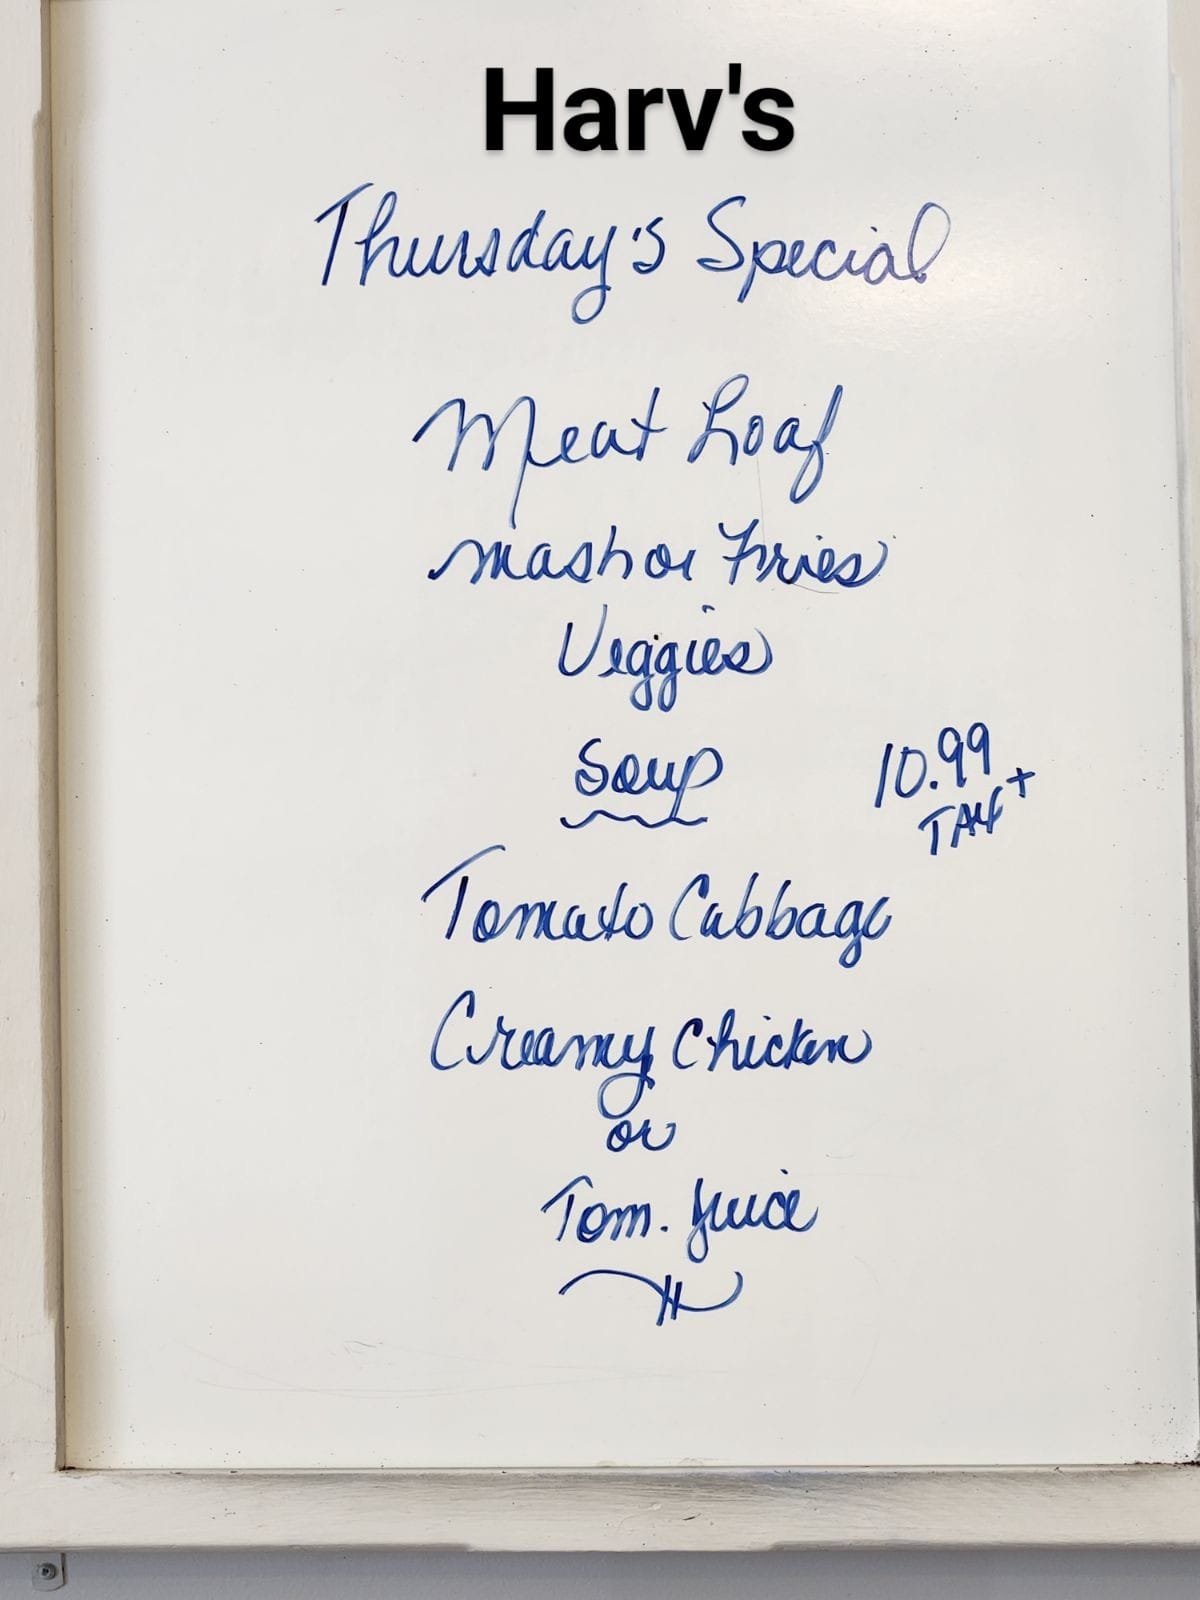 Harv's
Thursday's Special
Meat Loaf
mash or Fries
Veggies
Soup
10.99
TAX +
Tomato Cabbage
Creamy Chicken
or
Tom. Juice